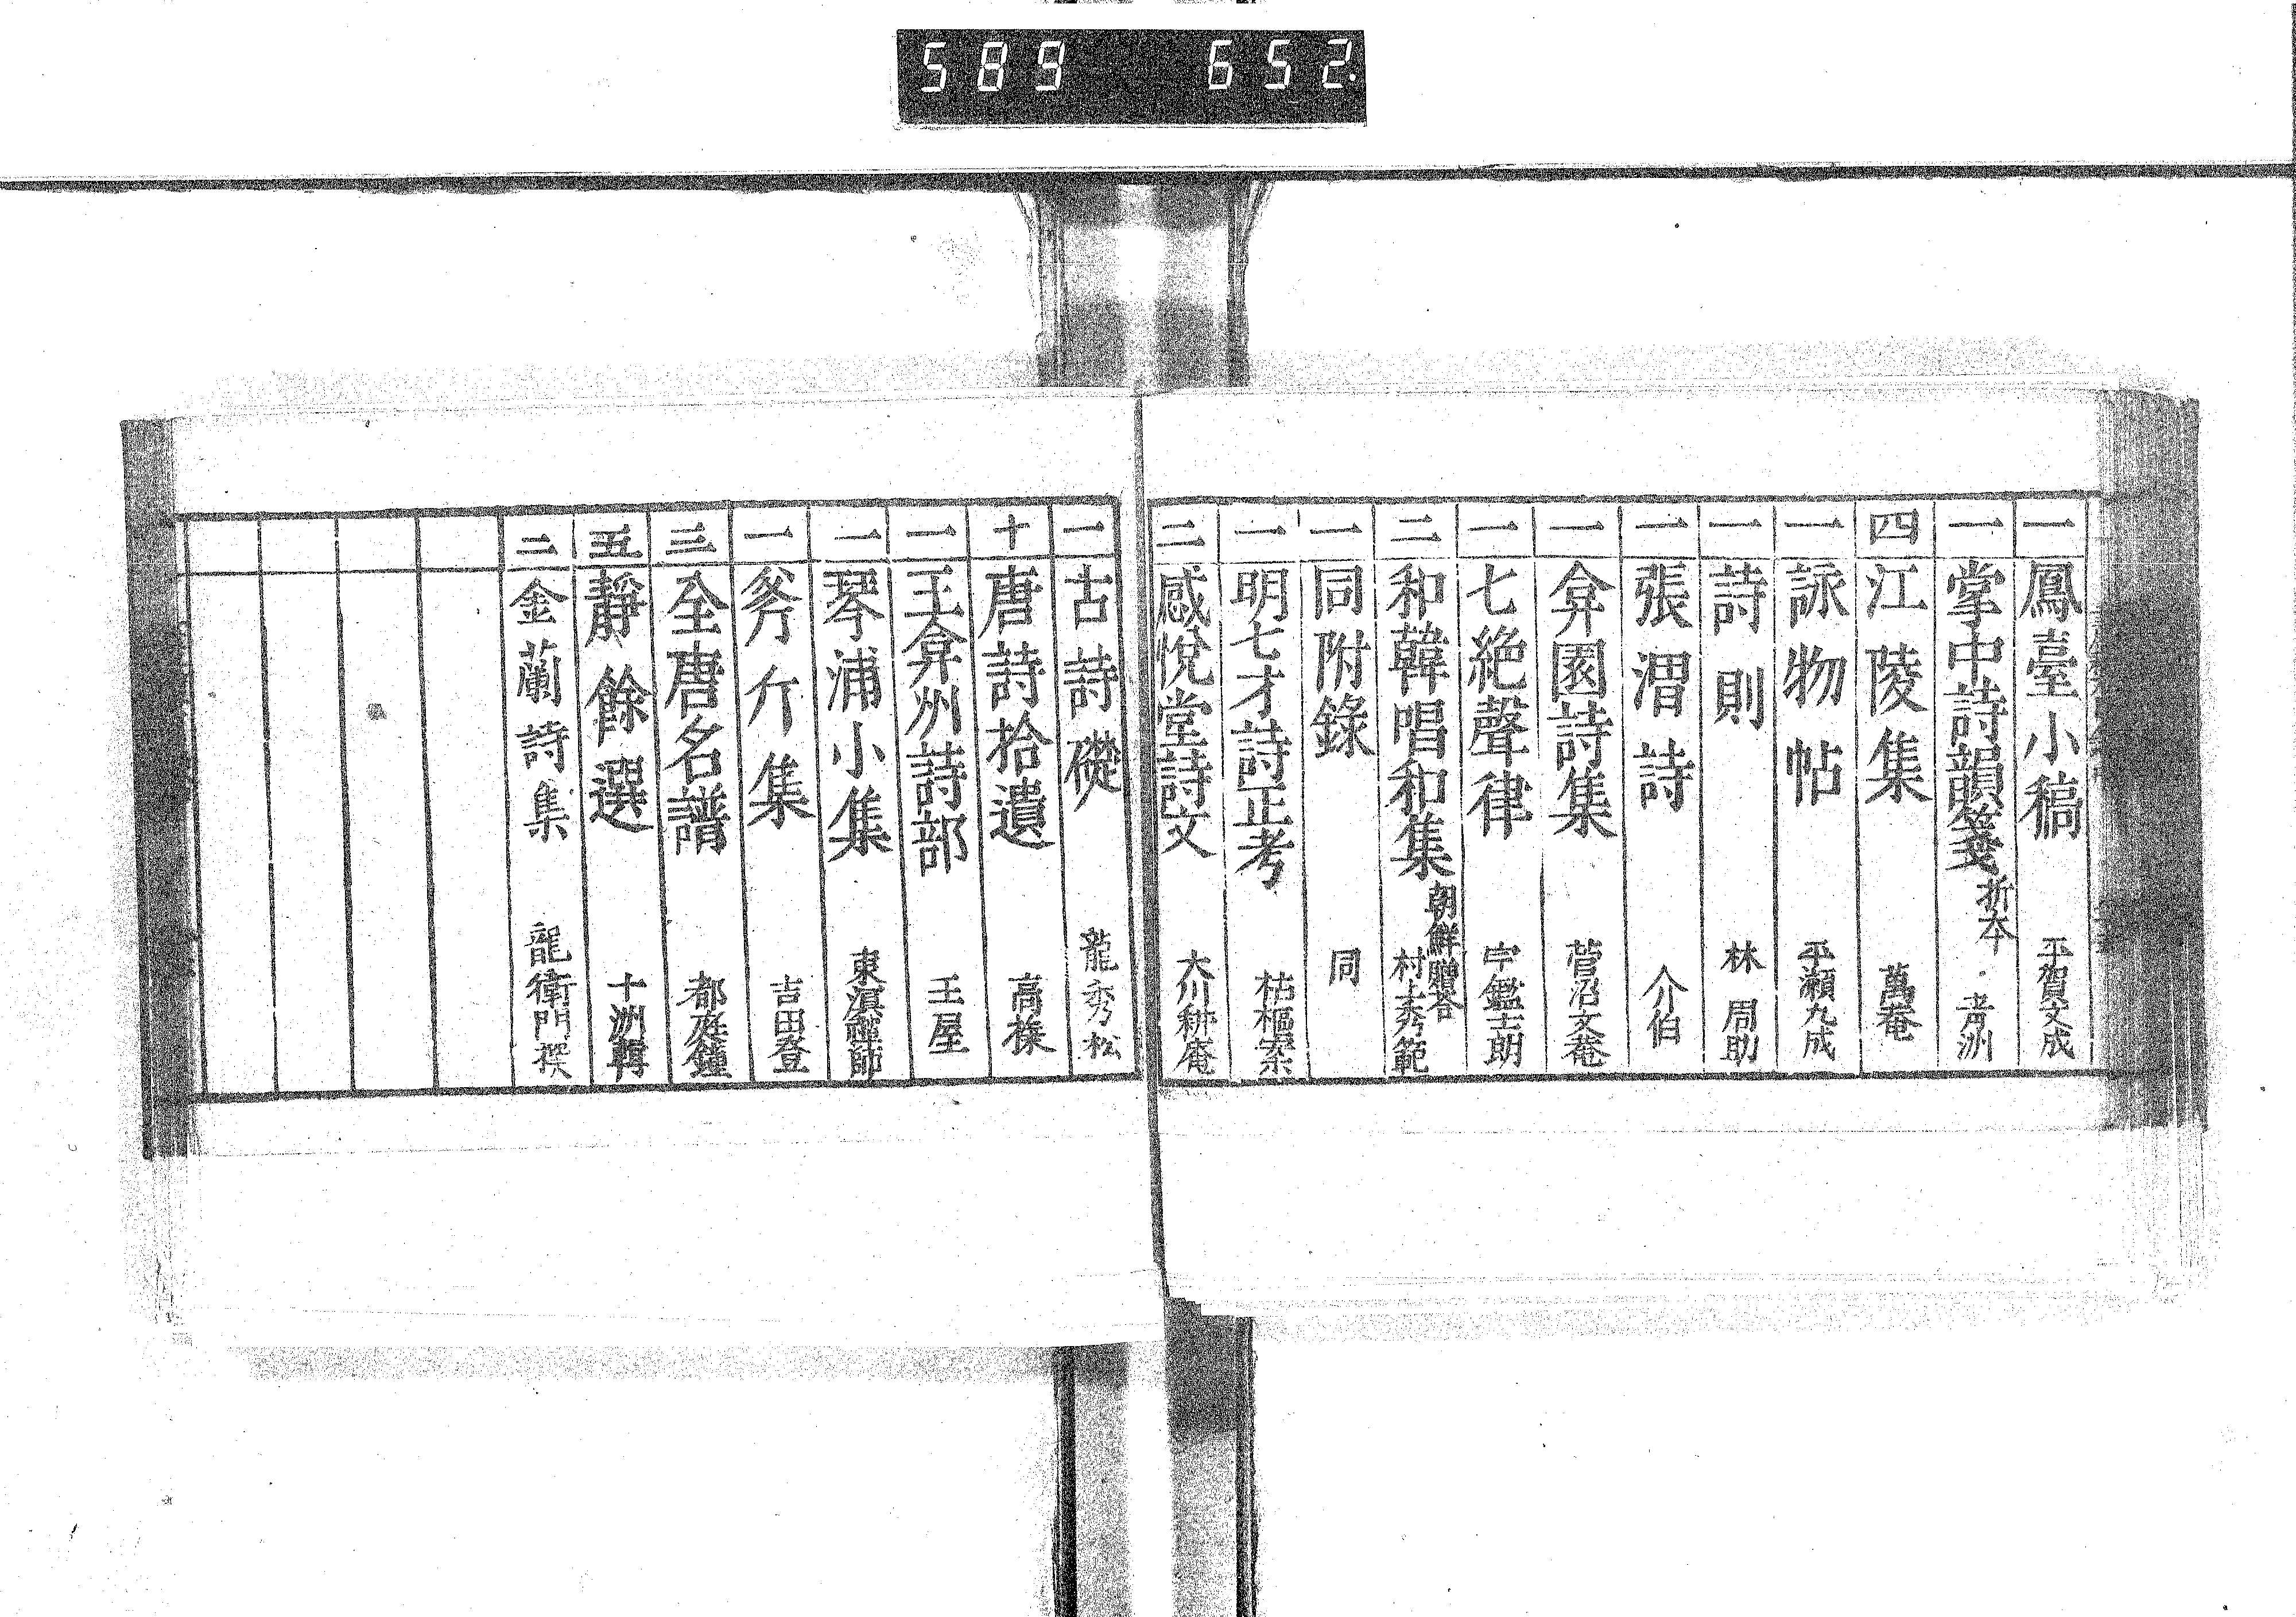 589 652.
一 鳳臺小稿 平賀文成
一 掌中詩韻箋 折本  老洲
四 江陵集 萬菴
一 詠物帖 平瀬九成
一 詩則 林周助
一 張渭詩 介伯
一 弇園詩集 菅沼文菴
一 七絶聲律 中鑑三朗
二 和韓唱和集 朝鮮贈答 村上秀範
一 同附錄 同
一 明七才詩正考 祜樞素
二 感悅堂詩文 大川耕庵
二 古詩礎 龍秀松
十 唐詩拾遺 高棅
二 王弇州詩部 王屋
一 琴浦小集 東溟禪師
一 斧斤集 吉田登
三 全唐名譜 都庭鐘
五 靜餘選 十洲輯
二 金蘭詩集 龍衛門撰